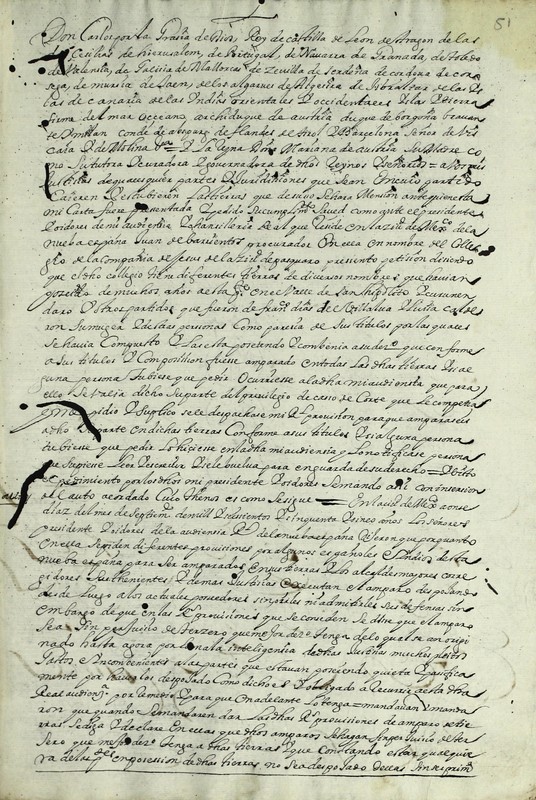 51
Don Carlos por la Grasia de Dios, Rey de castilla de Leon de Aragon de las
Cecilias de hierusalem, de Portugal, de Navarra de Granada, de Toledo
de Valensia, de Galicia de Mallorcas de Sevilla de Serdeña de cordova de cor
sega, de mursia de Jaen, de los algarves de Algesira de Gibraltar de las Ys
las de canaria de las Indias orientales Y occidentales Yslas Y tierra
firme del mar oceano, archiduque de austria duque de borgoña bravan
te Y milan conde de abspurg de flandes de tirol Y Barcelona Señor de Vis
caya Y de Molina = Y la Reyna Dña Mariana de austria Su Madre co
mo Su tutora Y curadora Y governadora de dhos Reynos Y señorios = a los mis
justisias de qualesquier partes Y Jurisdisiones que sean en cuio partido
caieren Y estubieren las tierras que de suso se hara Mension ante quien esta
mi carta fuere presentada Y pedido su cumplimto saved como ante el presidente
Y oidores de mi audiensia Y chansilleria Real que reside en la ziud de Mexco de la
nueba españa Juan de barientos procurador en ella en nombre del Colle
gio de la Compañia de Jesus de la ziud de pasquaro presento petision disiendo
que el dho collegio tiene diferentes tierras de diversos nombres que havian
poseido de muchos años a esta pte en el Valle de San hipolito
daro Y otros partidos que fueron de franco dias de Y Luisa calde
ron Su muger Y de otras personas como paresia de sus titulos por las quales
se havia compuesto Y las esta poseyendo Y combenia a su dro que conforme
a sus titulos Y composision fuese amparado en todas las dhas tierras Y si al
guna persona tubiese que pedir ocuriese a la dha mi audiensia que para
ello se traia dicho su parte del previlegio de caso de Corte que le competia
pidio Y suplico se le despachase mi Rl provision para que amparase is
a dho su parte en dichas tierras conforme a sus titulos Y si alguna persona
tubiese que pedir lo hiciese en la dha mi audiensia Y lo notificase persona
que supiese leer Y escrevir Y se le buelva para en guarda de su derecho = Y visto
el pedimiento por los dhos mi presidente Y oidores se mando asi con insersion
del auto acordado cuio thenor es como se sigue = En la ziud de Mexco a onse
dias del mes de Septiemre de mill Y seisientos Y sinquenta Y sinco años los señores
presidente Y oidores de la audiensia Rl de la nueba españa Dixeron que por quanto
en ella se piden diferentes provisiones por algunos españoles e Indios de esta
nueba españa para ser amparados en sus tierras Y los alcaldes mayores corre
gidores Sus thenientes Y demas Justisias executan el amparo despojando
desde luego a los actuales poseedores sin oirles ni admitirles sus defensas sin
embargo de que en las Rs provisiones que se conseden se dise que el amparo
sea sin perjuisio de tersero que mejor dro tenga de lo qual se an origi
nado hasta agora por la mala inteligensia de dhas Justisias muchos pleitos
Gastos e Inconbenientes a las partes que estavan poseyendo quieta Y pasifica
mente por haverlos despojado como dicho es Y obligado a recurrir a esta dha
Real audiensia por remedio Y para que en adelante lo tenga = mandavan Y manda
ron que quando se mandaren dar las dhas Rs provisiones de amparo se tie
rras se diga Y declare en ellas que dhos amparos se hagan sin perjuisio de ter
sero que mejor dro tenga a dhas tierras Y que constando estar qualquie
ra de las ptes en posesion de dhas tierras no sea despojado dellas sin primero